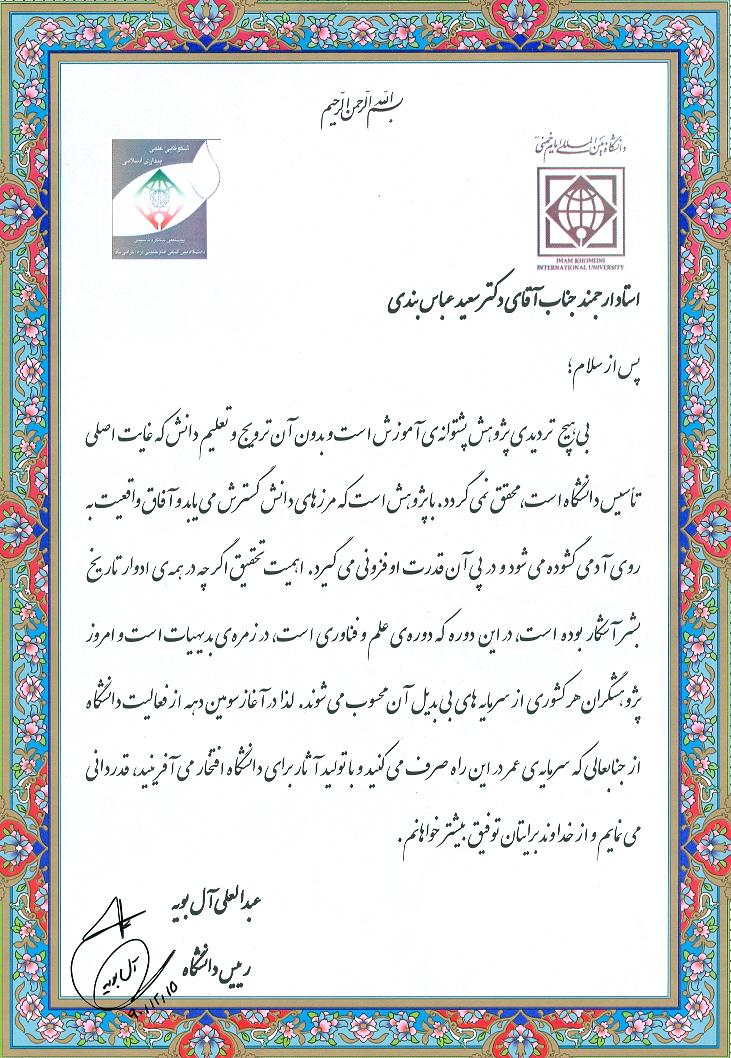 بسم الله الرحمن الرحیم
دانشگاه بین المللی امام خمینی
شکوفایی علمی
بیداری اسلامی
IMAM KHOMEINI
INTERNATIONAL UNIVERSITY
استاد ارجمند جناب آقای دکتر سعید عباس بندی
پس از سلام؛
بی هیچ تردیدی پژوهش پشتوانه ی آموزش است و بدون آن ترویج و تعلیم دانش که غایت اصلی
تأسیس دانشگاه است، محقق نمی گردد. با پژوهش است که مرزهای دانش گسترش می یابد و آفاق واقعیت به
روی آدمی گشوده می شود و در پی آن قدرت او فزونی می گیرد. اهمیت تحقیق اگرچه در همه ی ادوار تاریخ
بشر آشکار بوده است، در این دوره که دوره ی علم و فناوری است، در زمره ی بدیهیات است و امروز
پژوهشگران هر کشوری از سرمایه های بی بدیل آن محسوب می شوند. لذا در آغاز سومین دهه از فعالیت دانشگاه
از جنابعالی که سرمایه ی عمر در این راه صرف می کنید و با تولید آثار برای دانشگاه افتخار می آفرینید، قدردانی
می نمایم و از خداوند برایتان توفیق بیشتر خواهانم.
عبدالعلی آل بویه
رییس دانشگاه
آل بویه